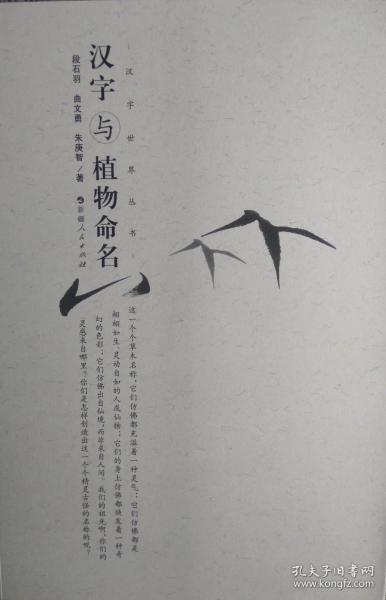 汉字世界丛书
汉字与植物命名
段石羽 曲文勇 朱庚智/著
新疆人民出版社
这一个个草木名称,它们仿佛都充溢着一种灵气;它们仿佛都是
栩栩如生、灵动自如的人或仙物;它们的身上仿佛都焕发着一种奇
幻的色彩;它们仿佛出自仙境,而非来自人间。我们的祖先啊,你们的
灵感来自哪里?你们是怎样创造出这一个个精灵古怪的名称的呢?
孔夫子旧书网